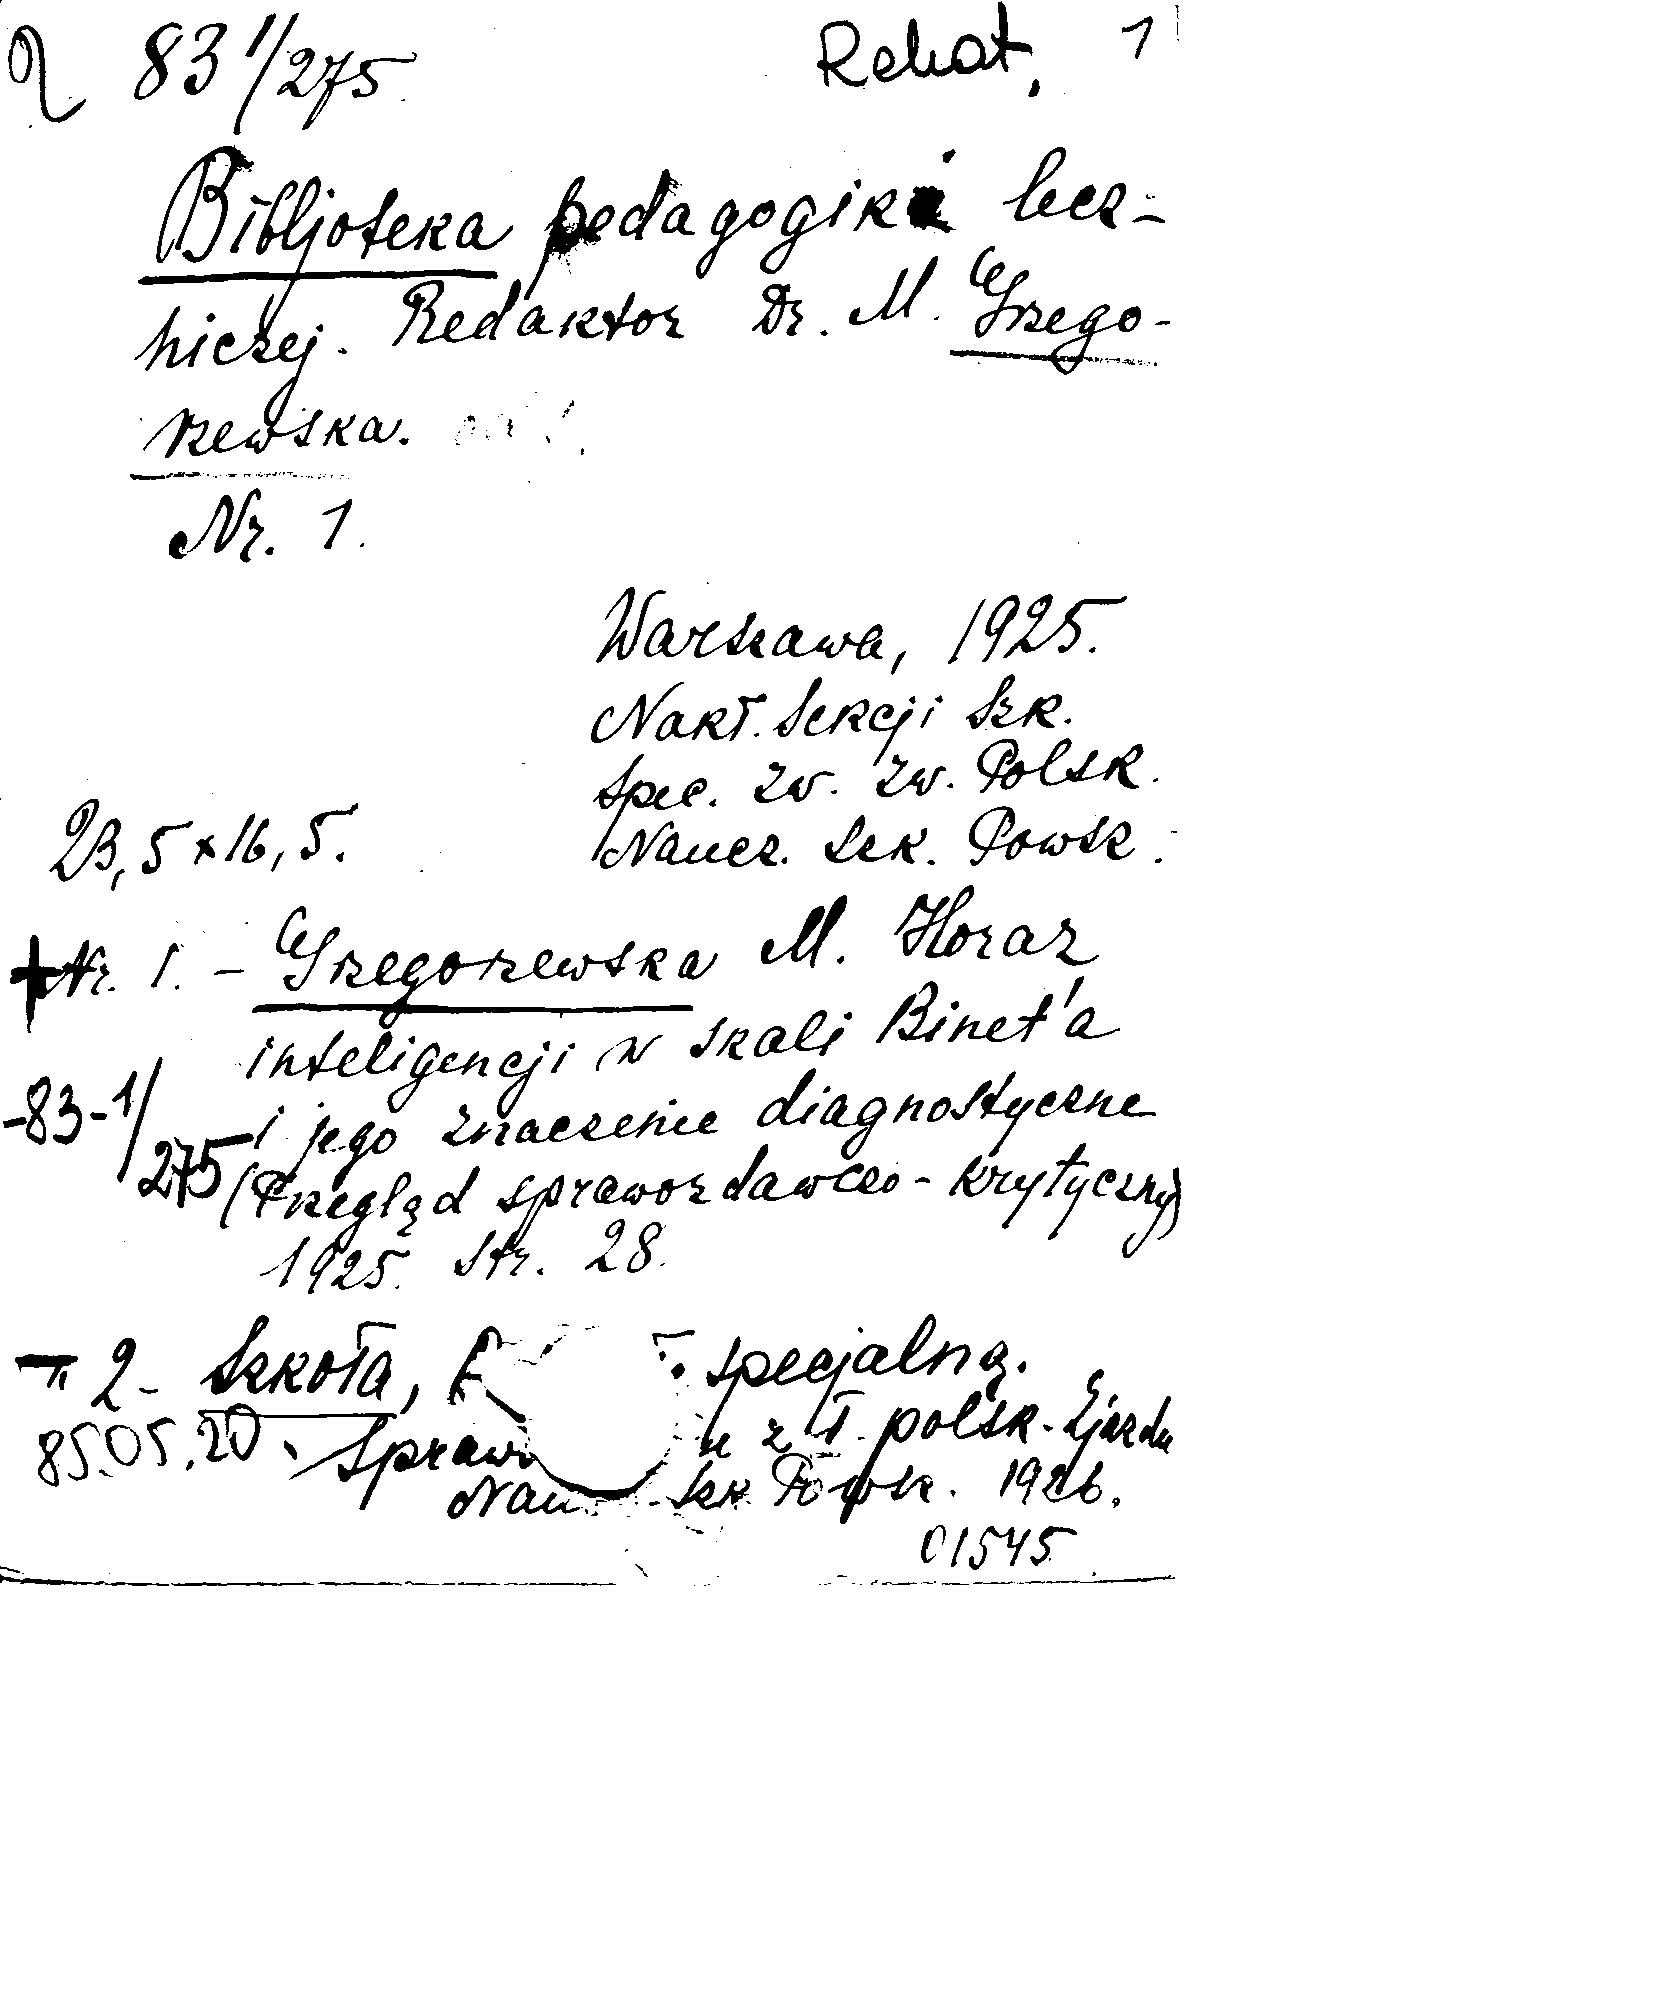 83 1/275 Rekat. 1
Bibljoteka pedagogiki lecz-
niczej. Redaktor Dr. M. Grzego-
rzewska.
Nr. 1.
Warszawa, 1925.
Nakł. Sekcji Szk.
Spec. Zw. Zw. Polsk.
23,5 x 16,5. Naucz. Szk. Powsz.
+ Nr. 1. - Grzegorzewska M. Horaz
inteligencji w skali Binet'a
-83-1/275 i jego znaczenie diagnostyczne
(Przegląd sprawozdawczo-krytyczny)
1925. Str. 28.
2- Szkoła, specjalną.
85.05.20 Spraw z I polsk. Zjazdu
Nau Szk Powsz. 1926.
01545